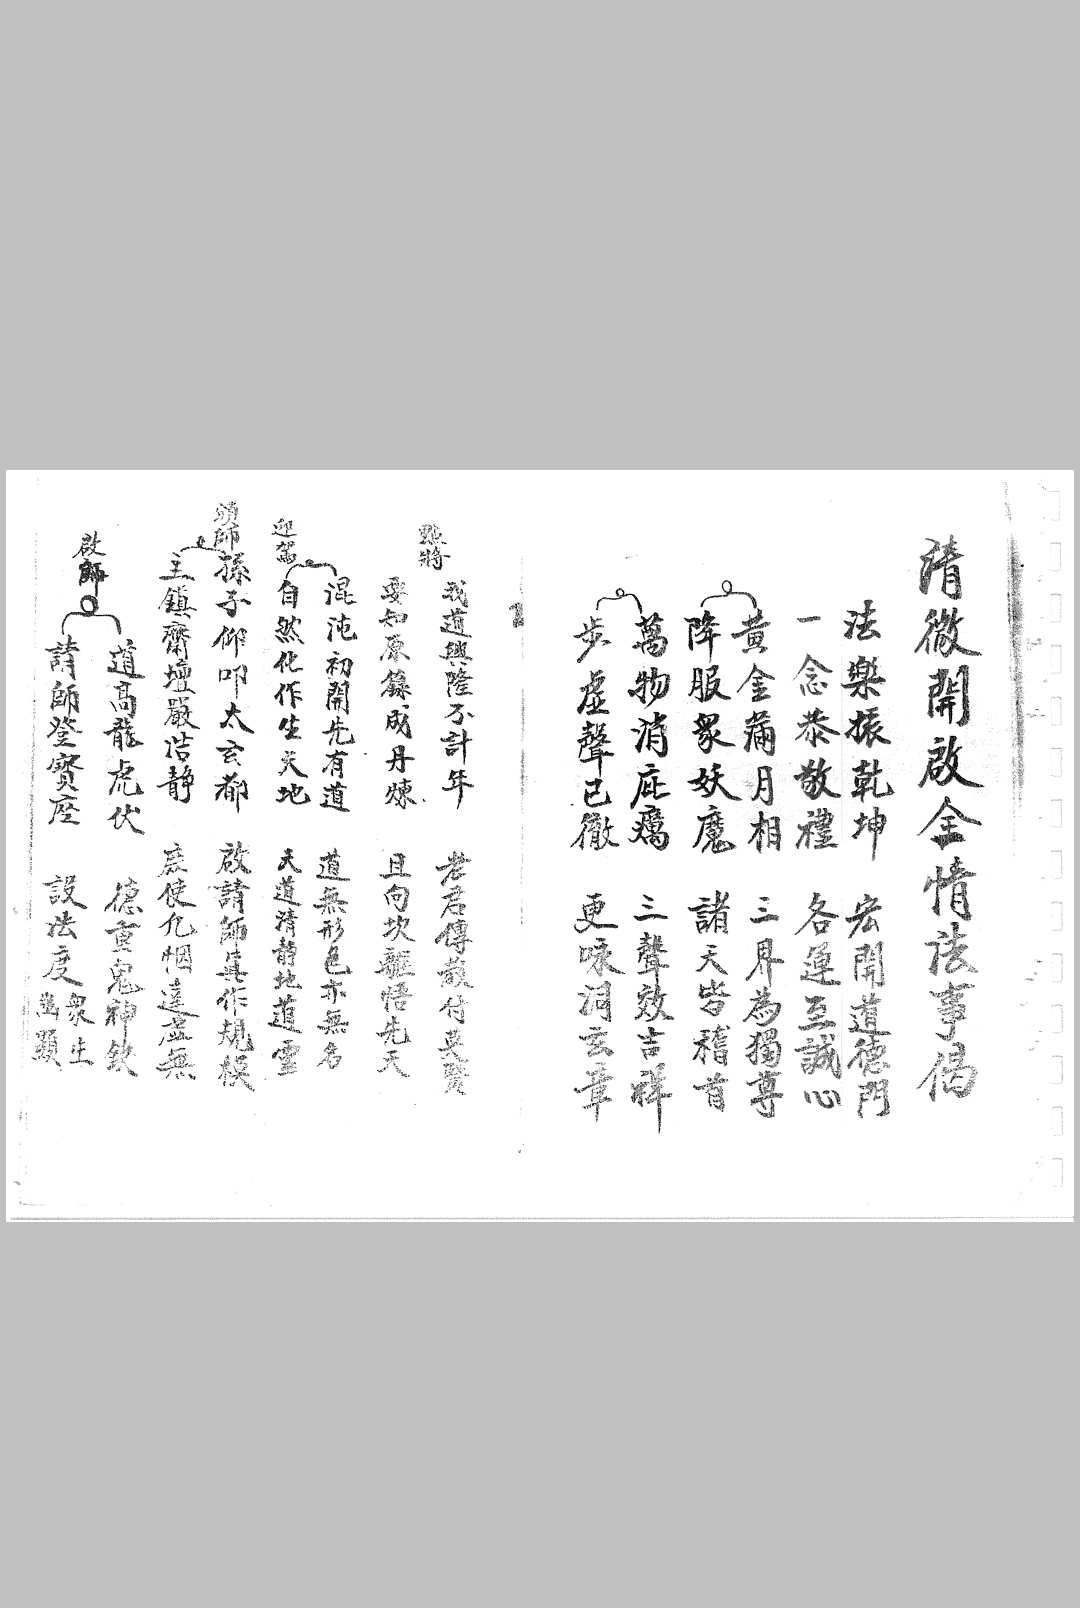 清微開啟全情法事偈
法樂振乾坤 宏開道德門
一念恭敬禮 各運至誠心
黃金滿月相 三界為獨尊
降服眾妖魔 諸天皆稽首
萬物消疵癘 三聲效吉祥
步虛聲已徹 更咏洞玄章
點將
我道興隆不計年 老君傳教付莫賢
要知原籙成丹煉 且向坎離悟先天
迎駕
混沌初開先有道 道無形色亦無名
自然化作生天地 天道清靜地道靈
頌師
孫子仰叩太玄都 啟請師真作規模
主鎮齋壇嚴洁靜 庶使凡悃達虛無
啟師
道高龍虎伏 德重鬼神欽
請師登寶座 設法度眾生